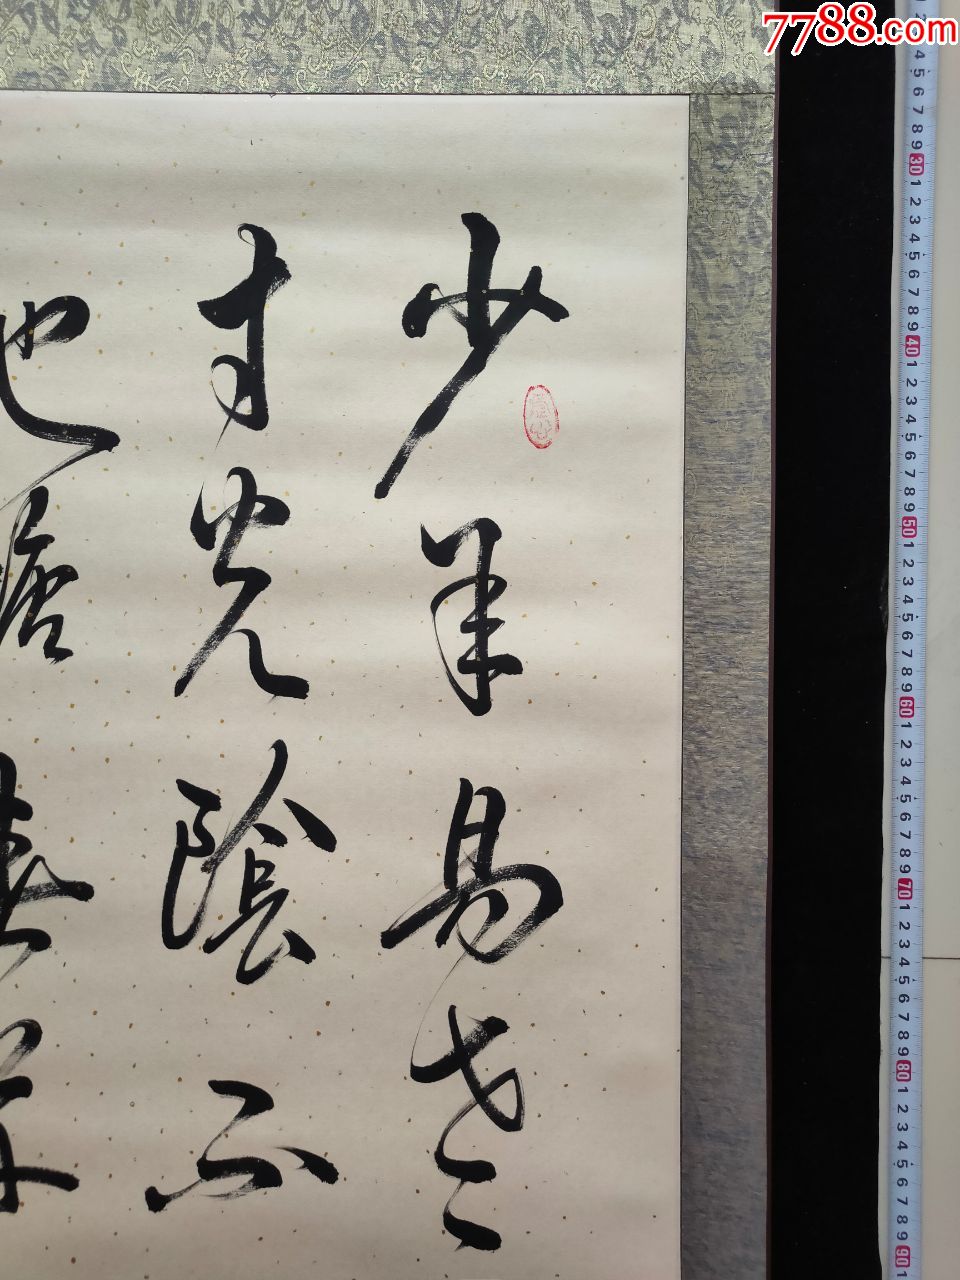 7788.com
少年易老
寸光陰不
池塘春草
4 5 6 7 8 9 30 1 2 3 4 5 6 7 8 9 40 1 2 3 4 5 6 7 8 9 50 1 2 3 4 5 6 7 8 9 60 1 2 3 4 5 6 7 8 9 70 1 2 3 4 5 6 7 8 9 80 1 2 3 4 5 6 7 8 9 90 1